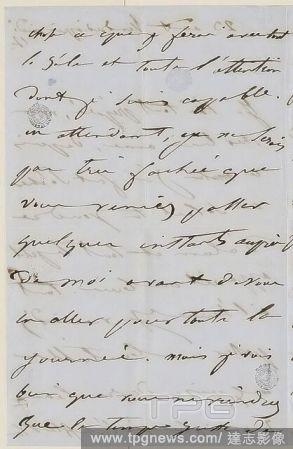 ce que je ferai avec tout
le zèle et toute l'attention
dont je suis capable.
en attendant, je ne serais
pas très fachée que
vous veniez passer
quelques instants
de moi avant de vous
en aller pour toute la
journée. mais je vois
bien que vous ne viendrez
que le temps
TPG
www.tpgnews.com / 達志影像